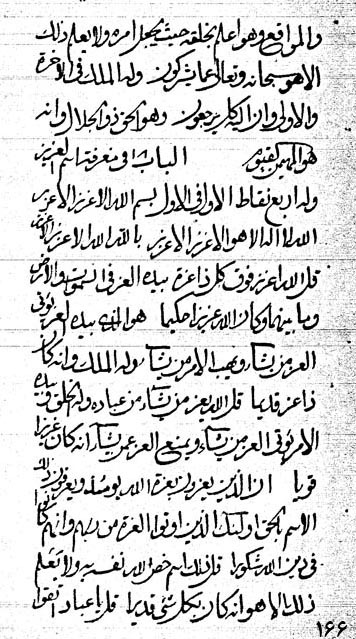 والمواقع وهو اعلم بخلقه حيث يجعل امره ولا يعلم ذلك
الا هو سبحانه وتعالى عما يشركون وله الملك في الاخرة
والاولى وان اليه كل يرجعون وهو الحق ذو الجلال وانه
هو المهيمن القيوم الباب ١٨ في معرفة اسم العزيز
وله اربع نقاط الاول في الاول بسم الله الاعزز الاعزز
الله لا اله الا هو الاعزز الاعزز بالله الله الاعزز الاعزز
قل الله اعزز فوق كل ذاعزة بيده العز في السموات والارض
وما بينهما وكان الله عزيزا حكيما هو الذي بيده العز يؤتي
العز من يشاء ويهب الامر من يشاء وله الملك وانه كان
ذا عز قديما قل الله يعز من يشاء من عباده وله الخلق وبيده
الامر يؤتي العز من يشاء ويمنع العز عمن يشاء انه كان عزيزا
قويا ان الذين يعزون بعزة الله يومئذ ويعرفون ذلك
الاسم بالحق اولئك الذين اوتوا العزة من ربهم وانهم كانوا
في دين الله شكورا قل ذلك اسم خص الله نفسه به ولا يعلم
ذلك الا هو انه كان بكل شيء قديرا قل يا عباد اتقوا
١٦٦